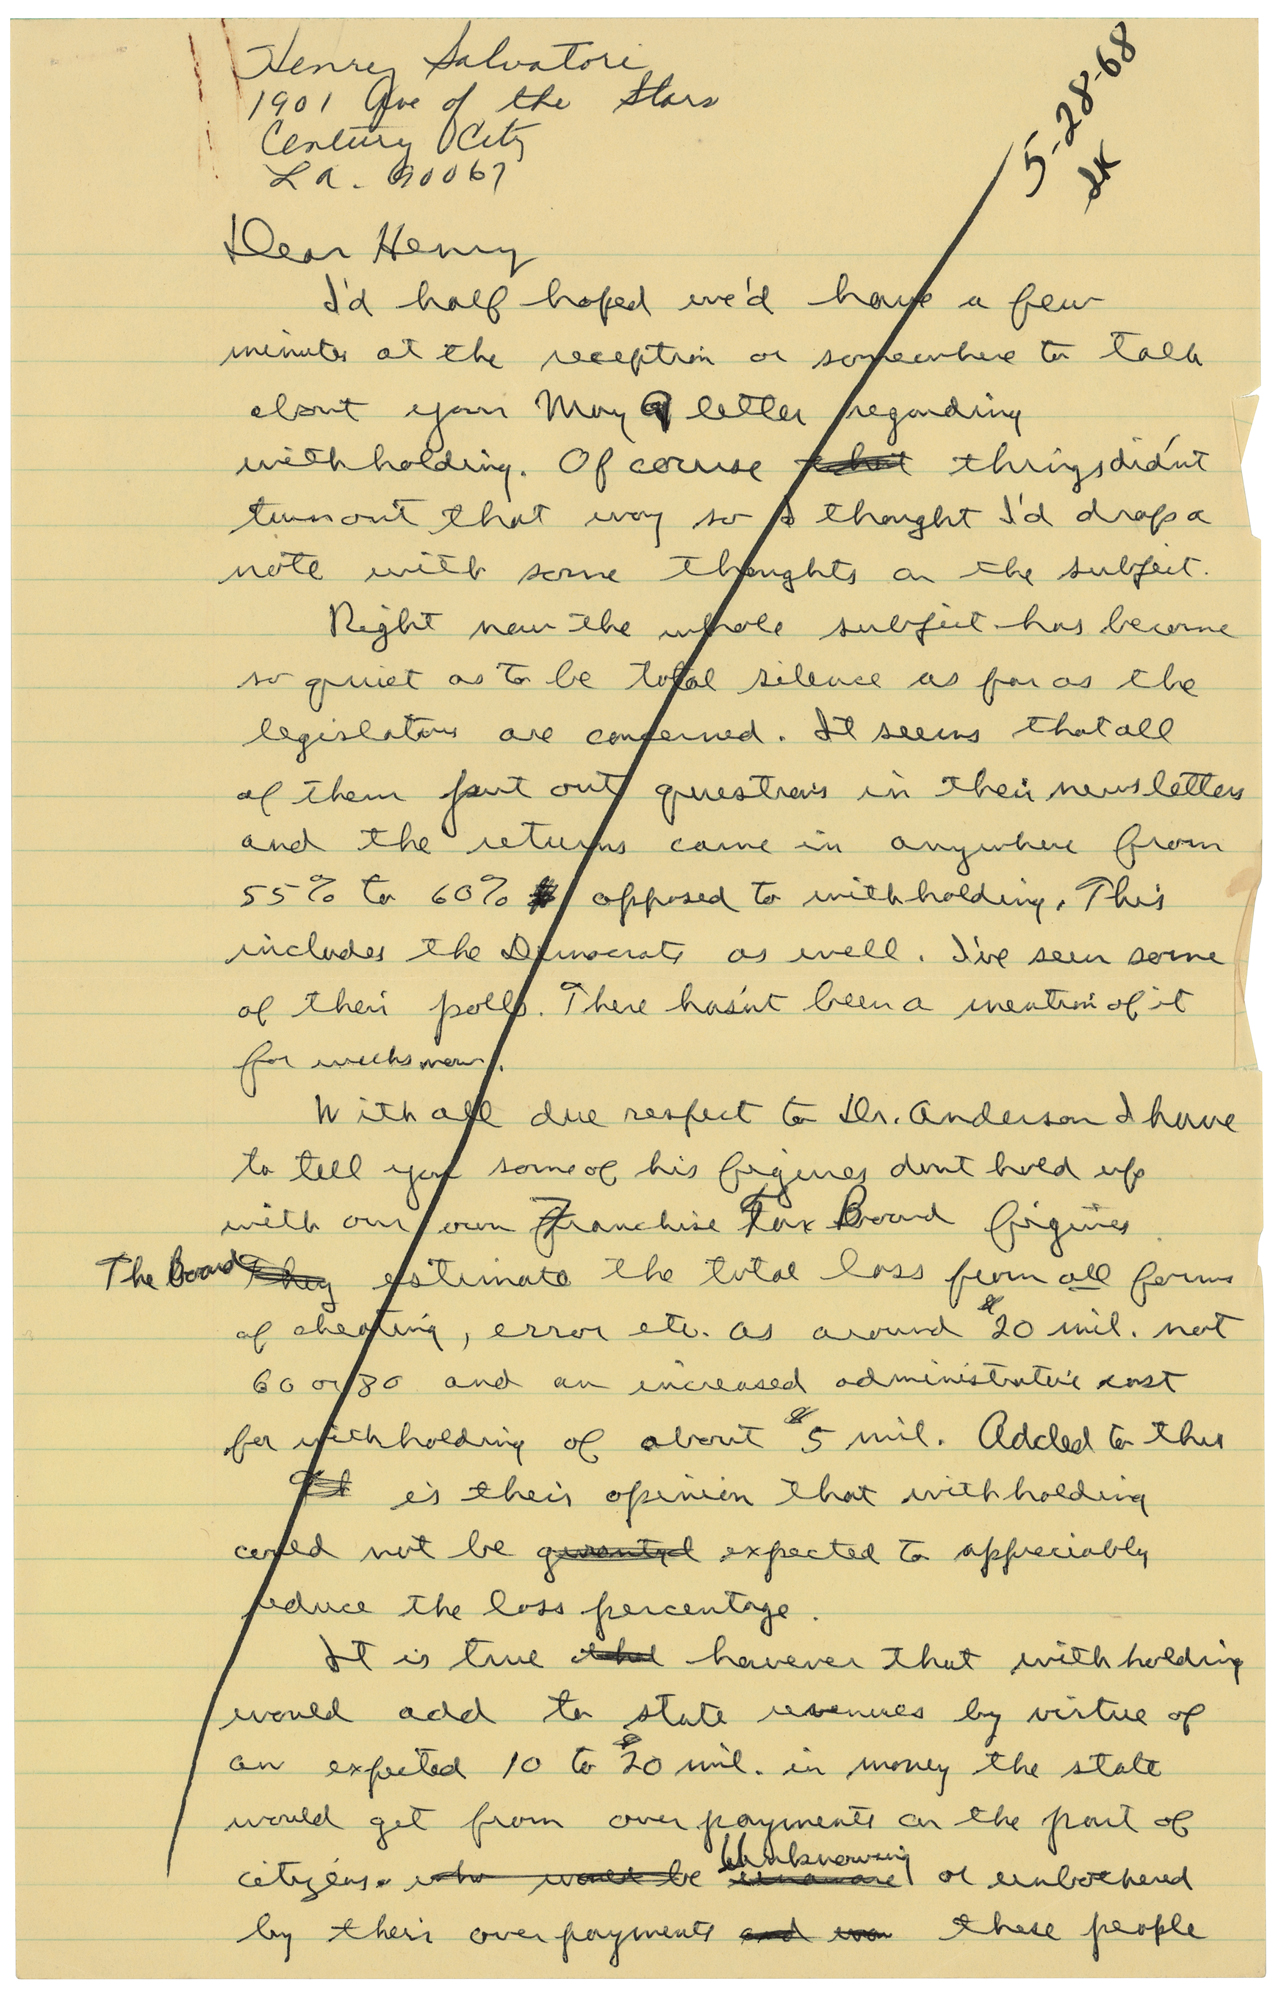 Henry Salvatori
1901 Ave of the Stars
Century City
L A. 90067
5-28-68
Dear Henry
I'd half hoped we'd have a few
minutes at the reception or somewhere to talk
about your May 9 letter regarding
withholding. Of course that things didn't
turn out that way so I thought I'd drop a
note with some thoughts on the subject.
Right now the whole subject has become
so quiet as to be total silence as far as the
legislators are concerned. It seems that all
of them put out questions in their newsletters
and the returns came in anywhere from
55% to 60% opposed to withholding. This
includes the Democrats as well. I've seen some
of their polls. There hasn't been a mention of it
for weeks now.
With all due respect to Dr. Anderson I have
to tell you some of his figures dont hold up
with our own Franchise Tax Board figures.
The Board They estimate the total loss from all forms
of cheating, error etc. as around $20 mil. not
60 or 80 and an increased administrative cost
for withholding of about $5 mil. Added to this
It is their opinion that withholding
could not be granted expected to appreciably
reduce the loss percentage.
It is true that however that withholding
would add to state revenues by virtue of
an expected 10 to $20 mil. in money the state
would get from over payments on the part of
citizens. who would be unaware Unknowing or unbothered
by their over payments and these people